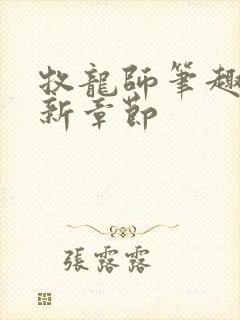 牧龍師筆趣
新章節
張露露